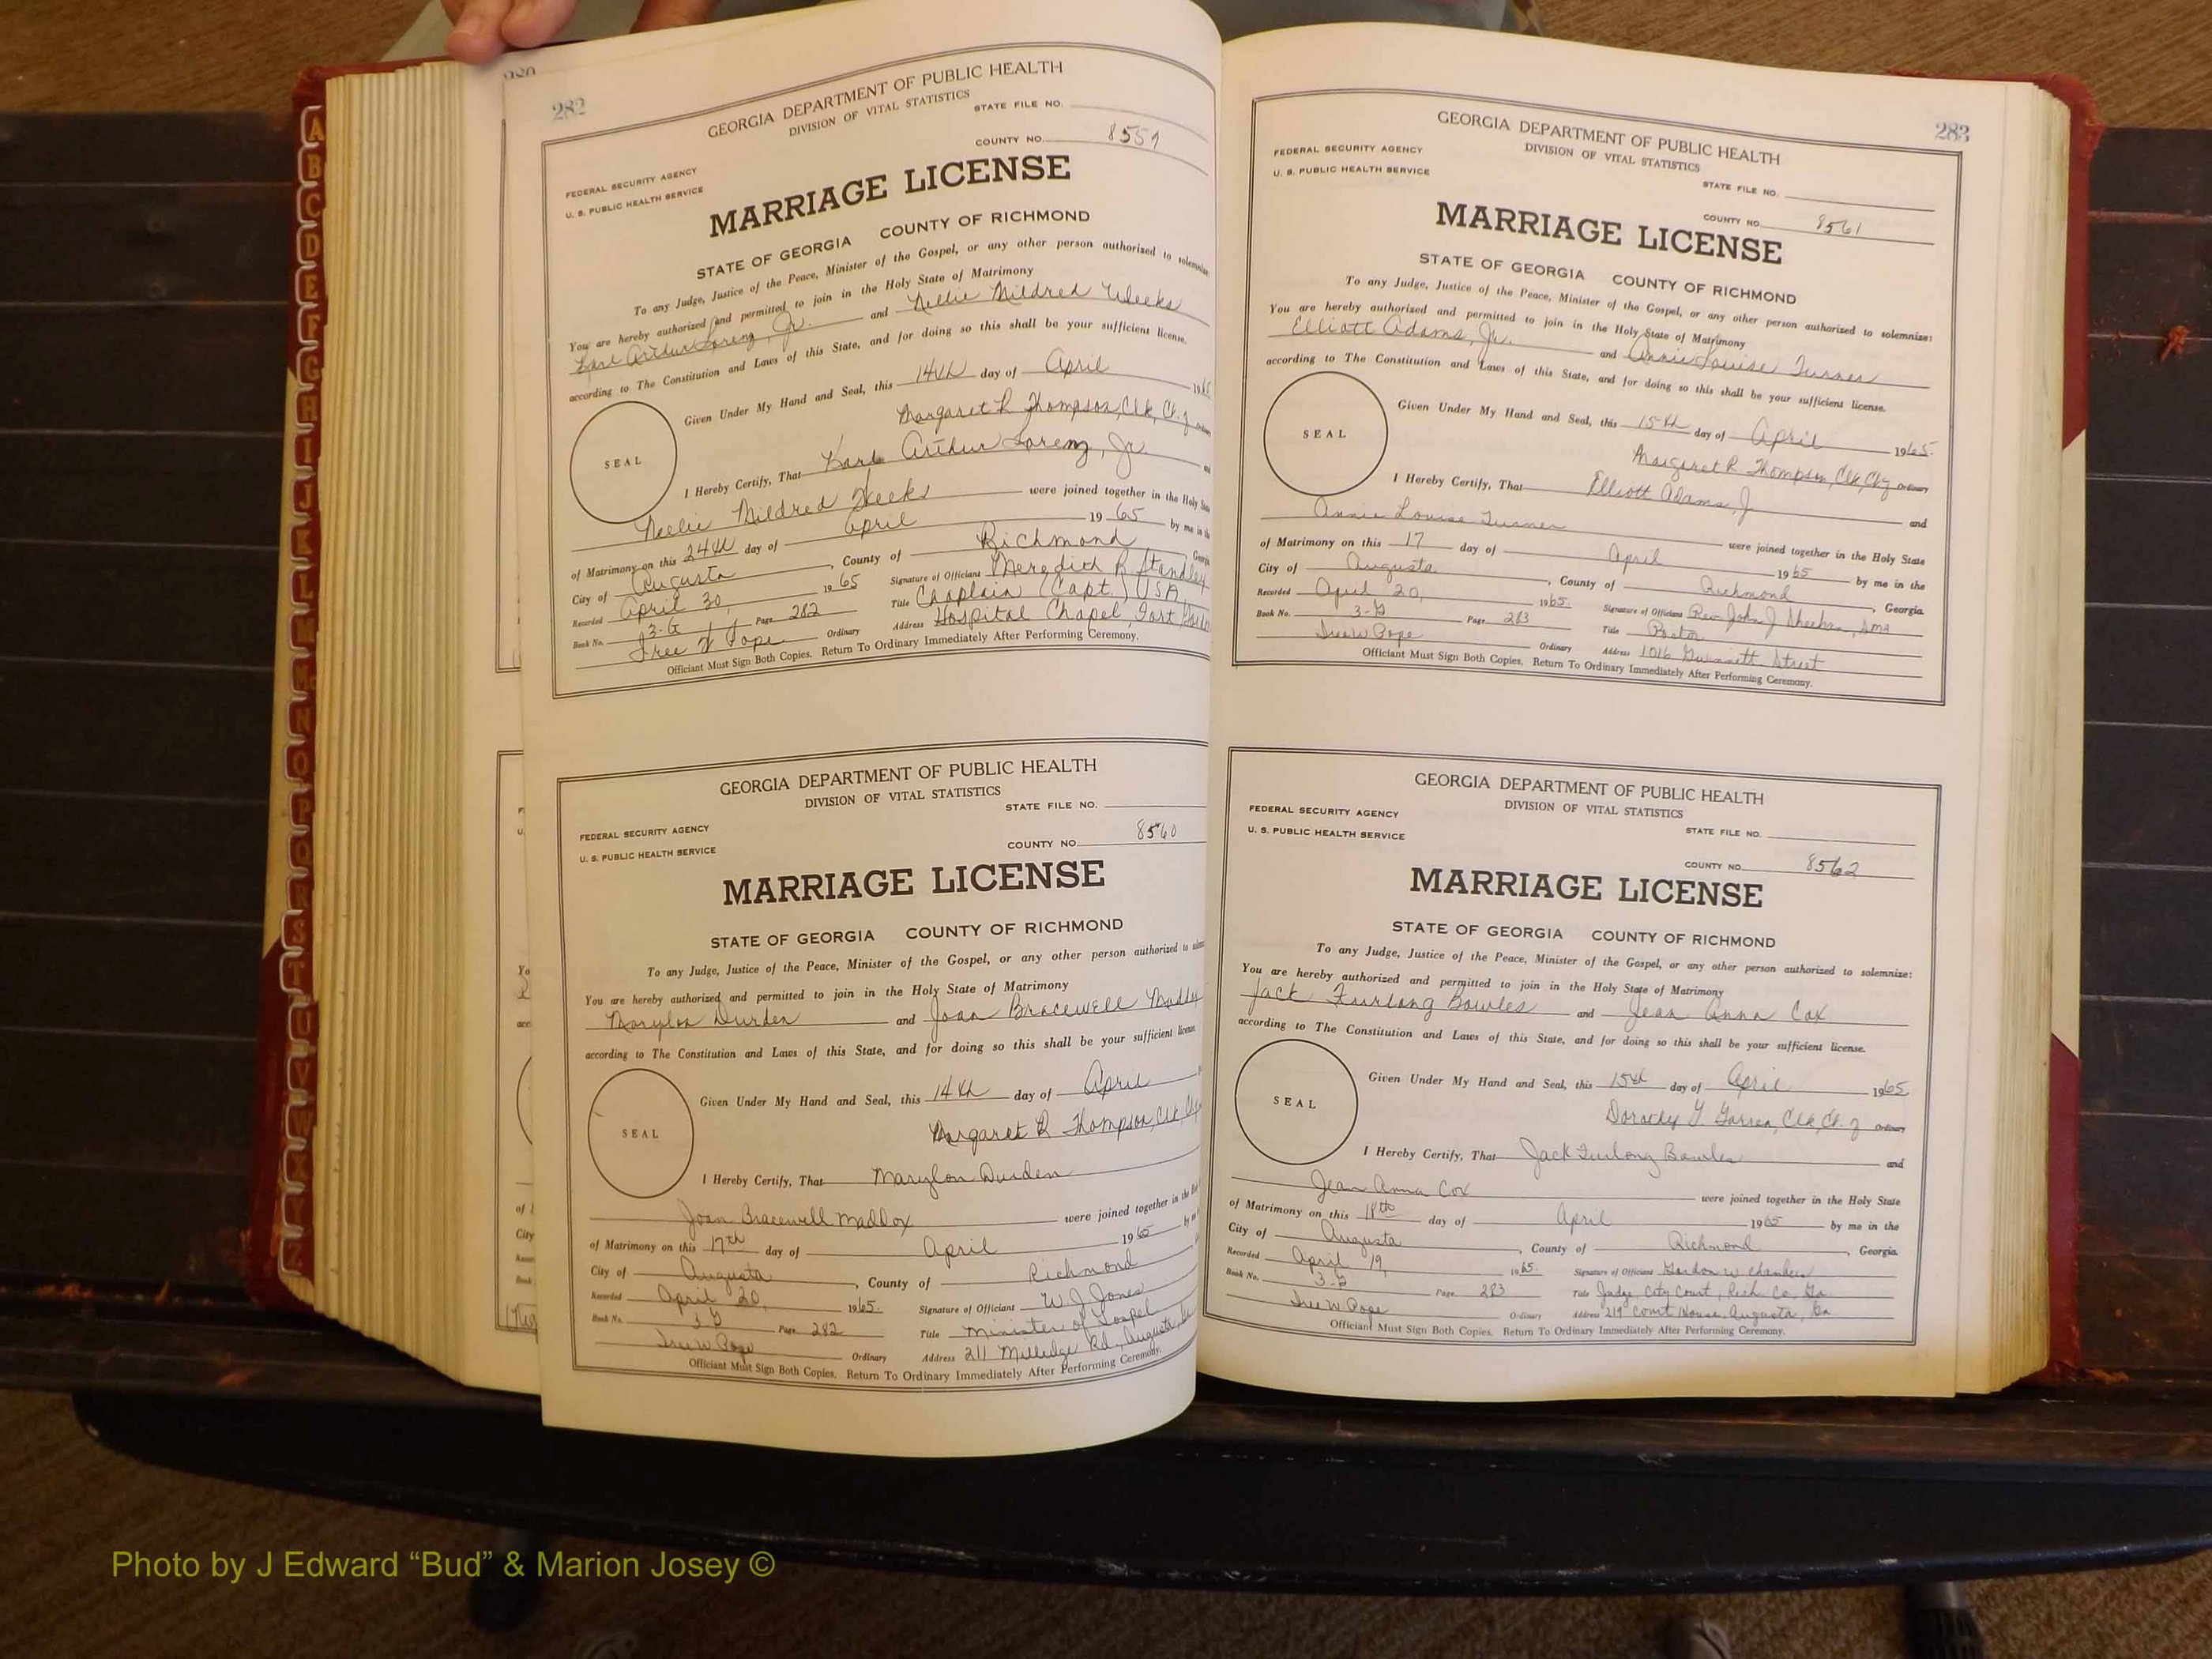 A
B
C
D
E
F
G
H
I
J
K
L
M
N
O
P
Q
R
S
T
U
V
W
X
Y
Z
282
GEORGIA DEPARTMENT OF PUBLIC HEALTH
DIVISION OF VITAL STATISTICS
STATE FILE NO.
COUNTY NO. 8559
FEDERAL SECURITY AGENCY
U. S. PUBLIC HEALTH SERVICE
MARRIAGE LICENSE
STATE OF GEORGIA COUNTY OF RICHMOND
To any Judge, Justice of the Peace, Minister of the Gospel, or any other person authorized to solemnize
You are hereby authorized and permitted to join in the Holy State of Matrimony
Karl Arthur Lorenz, Jr. and Nellie Mildred Weeks
according to The Constitution and Laws of this State, and for doing so this shall be your sufficient license.
Given Under My Hand and Seal, this 14th day of April 196
Margaret R Thompson, Clk, Ct. of
SEAL
I Hereby Certify, That Karl Arthur Lorenz, Jr. and
Nellie Mildred Weeks were joined together in the Holy
of Matrimony on this 24th day of April 19 65 by me in the
City of Augusta, County of Richmond
Recorded April 30, 19 65 Signature of Officiant Meredith R Standley
Book No. 3-G Page 282 Title Chaplain (Capt.) USA
Ordinary Address Hospital Chapel, Fort
Officiant Must Sign Both Copies. Return To Ordinary Immediately After Performing Ceremony.
GEORGIA DEPARTMENT OF PUBLIC HEALTH
DIVISION OF VITAL STATISTICS
STATE FILE NO.
FEDERAL SECURITY AGENCY
U. S. PUBLIC HEALTH SERVICE
COUNTY NO. 8560
MARRIAGE LICENSE
STATE OF GEORGIA COUNTY OF RICHMOND
To any Judge, Justice of the Peace, Minister of the Gospel, or any other person authorized to
You are hereby authorized and permitted to join in the Holy State of Matrimony
Marylon Durden and Joan Bracewell
according to The Constitution and Laws of this State, and for doing so this shall be your sufficient license
Given Under My Hand and Seal, this 14th day of April
Margaret R Thompson, Clk,
SEAL
I Hereby Certify, That Marylon Durden
Joan Bracewell Maddox were joined together in the
of Matrimony on this 17th day of April 19 65
City of Augusta, County of Richmond
Recorded April 20, 1965. Signature of Officiant W J Jones
Book No. Page 282 Title Minister of Gospel
Ordinary Address 211 Milledge Rd, Augusta,
Officiant Must Sign Both Copies. Return To Ordinary Immediately After Performing Ceremony.
283
GEORGIA DEPARTMENT OF PUBLIC HEALTH
DIVISION OF VITAL STATISTICS
FEDERAL SECURITY AGENCY
U. S. PUBLIC HEALTH SERVICE
STATE FILE NO.
COUNTY NO. 8561
MARRIAGE LICENSE
STATE OF GEORGIA COUNTY OF RICHMOND
To any Judge, Justice of the Peace, Minister of the Gospel, or any other person authorized to solemnize:
You are hereby authorized and permitted to join in the Holy State of Matrimony
Elliott Adams, Jr. and Annie Louise Turner
according to The Constitution and Laws of this State, and for doing so this shall be your sufficient license.
Given Under My Hand and Seal, this 15th day of April 1965.
Margaret R Thompson, Clk, Ordinary
SEAL
I Hereby Certify, That Elliott Adams, J and
Annie Louise Turner were joined together in the Holy State
of Matrimony on this 17 day of April 1965 by me in the
City of Augusta, County of Richmond, Georgia.
Recorded April 20, 1965. Signature of Officiant Rev John J Sheehan, SMA
Book No. Page 283 Title Pastor
Ordinary Address 1016 Gwinnett Street
Officiant Must Sign Both Copies. Return To Ordinary Immediately After Performing Ceremony.
GEORGIA DEPARTMENT OF PUBLIC HEALTH
DIVISION OF VITAL STATISTICS
FEDERAL SECURITY AGENCY
U. S. PUBLIC HEALTH SERVICE
STATE FILE NO.
COUNTY NO. 8562
MARRIAGE LICENSE
STATE OF GEORGIA COUNTY OF RICHMOND
To any Judge, Justice of the Peace, Minister of the Gospel, or any other person authorized to solemnize:
You are hereby authorized and permitted to join in the Holy State of Matrimony
Jack Furlong Bowles and Jean Anna Cox
according to The Constitution and Laws of this State, and for doing so this shall be your sufficient license.
Given Under My Hand and Seal, this 15th day of April 1965
Dorothy Clk, Ct. of Ordinary
SEAL
I Hereby Certify, That Jack Furlong Bowles and
Jean Anna Cox were joined together in the Holy State
of Matrimony on this 18th day of April 1965 by me in the
City of Augusta, County of Richmond, Georgia.
Recorded April 19, 1965. Signature of Officiant Gordon W Chambers
Book No. Page 283 Title Judge, City Court, Rich. Co, Ga
Ordinary Address 219 Court House, Augusta, Ga
Officiant Must Sign Both Copies. Return To Ordinary Immediately After Performing Ceremony.
Photo by J Edward “Bud” & Marion Josey ©